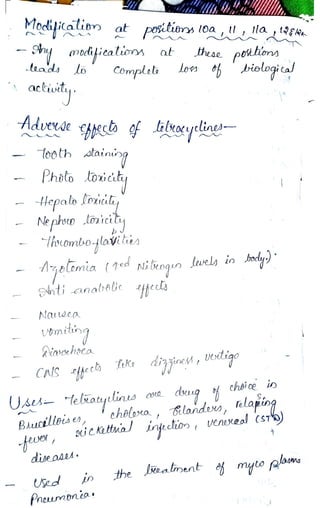 Modification at positions 10a, 11, 11a, 12
- Any modifications at these positions
leads to complete loss of biological
activity.
Adverse effects of tetracyclines-
- Tooth staining
- Photo toxicity
- Hepato toxicity
- Nephro toxicity
- Thrombo
- Azotemia (↑ed Nitrogen levels in body).
- Anti-anabolic effects
- Nausea
- vomiting
-
- CNS effects like dizziness, vertigo
Uses- Tetracyclines are drug of choice in
cholera, relaping
fever, infection, venereal (STD)
diseases.
- Used in the treatment of myco plasma
Pneumonia.